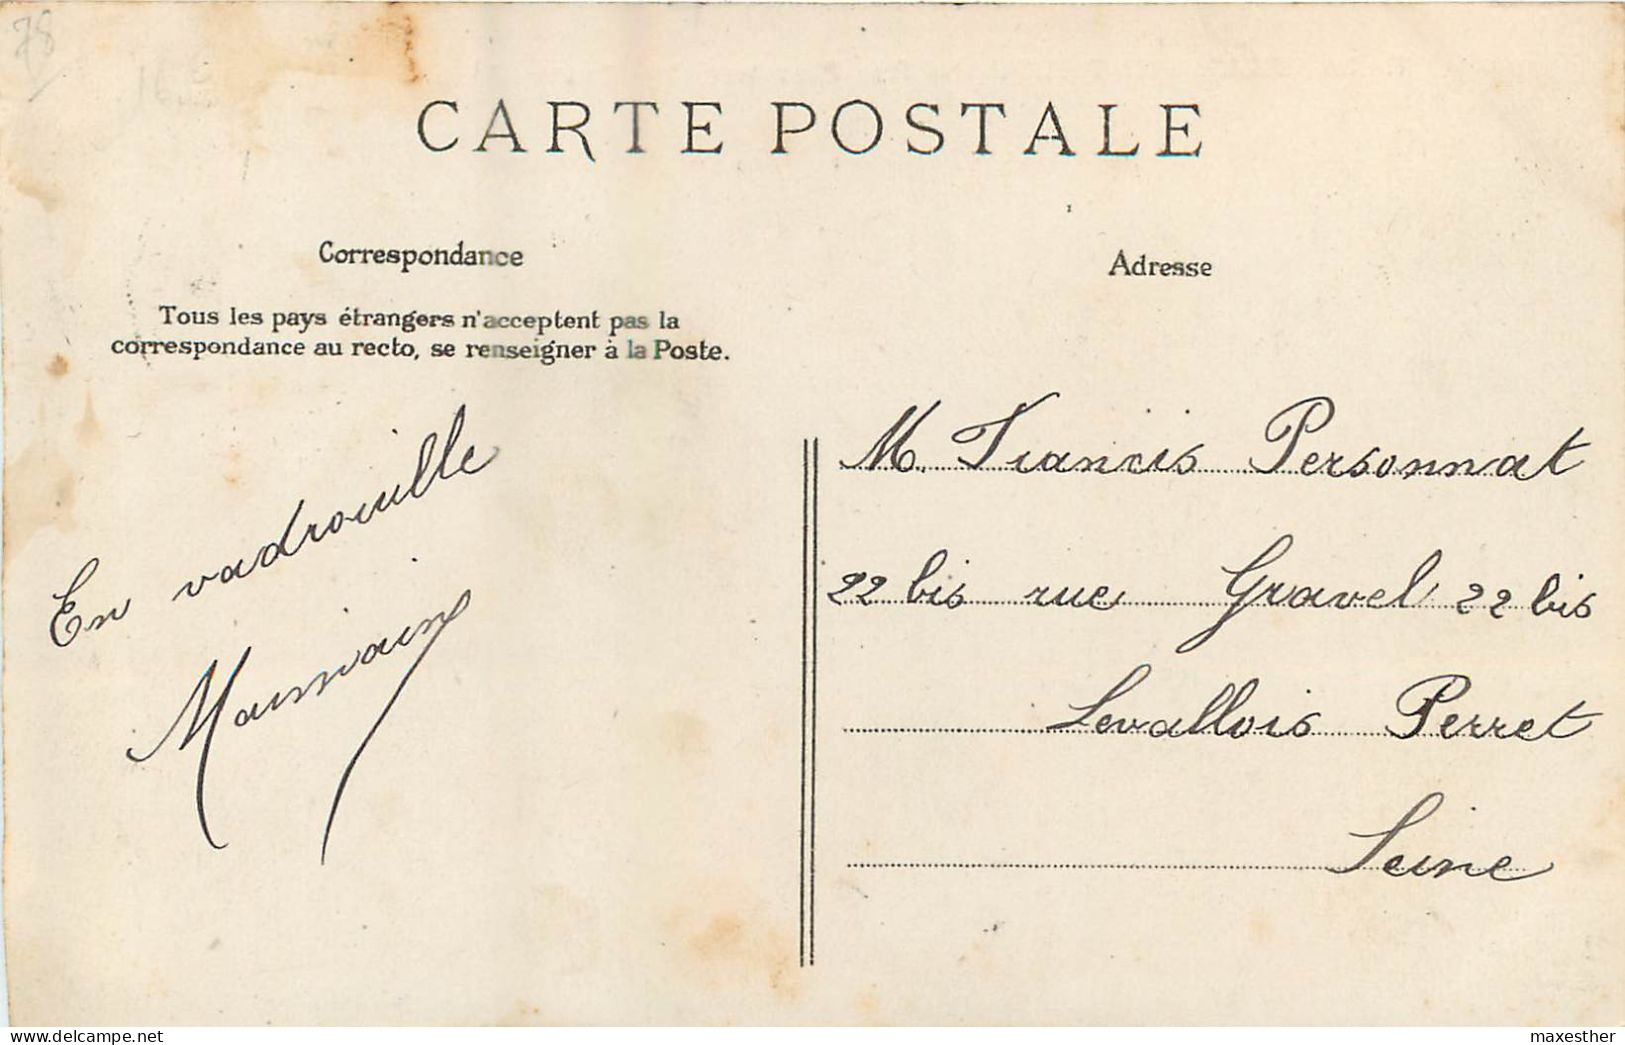 78
CARTE POSTALE
Correspondance
Adresse
Tous les pays étrangers n'acceptent pas la
correspondance au recto, se renseigner à la Poste.
En vadrouille
M. Francis Personnat
22 bis rue Gravel 22 bis
Levallois Perret
Seine
www.delcampe.net
maxesther